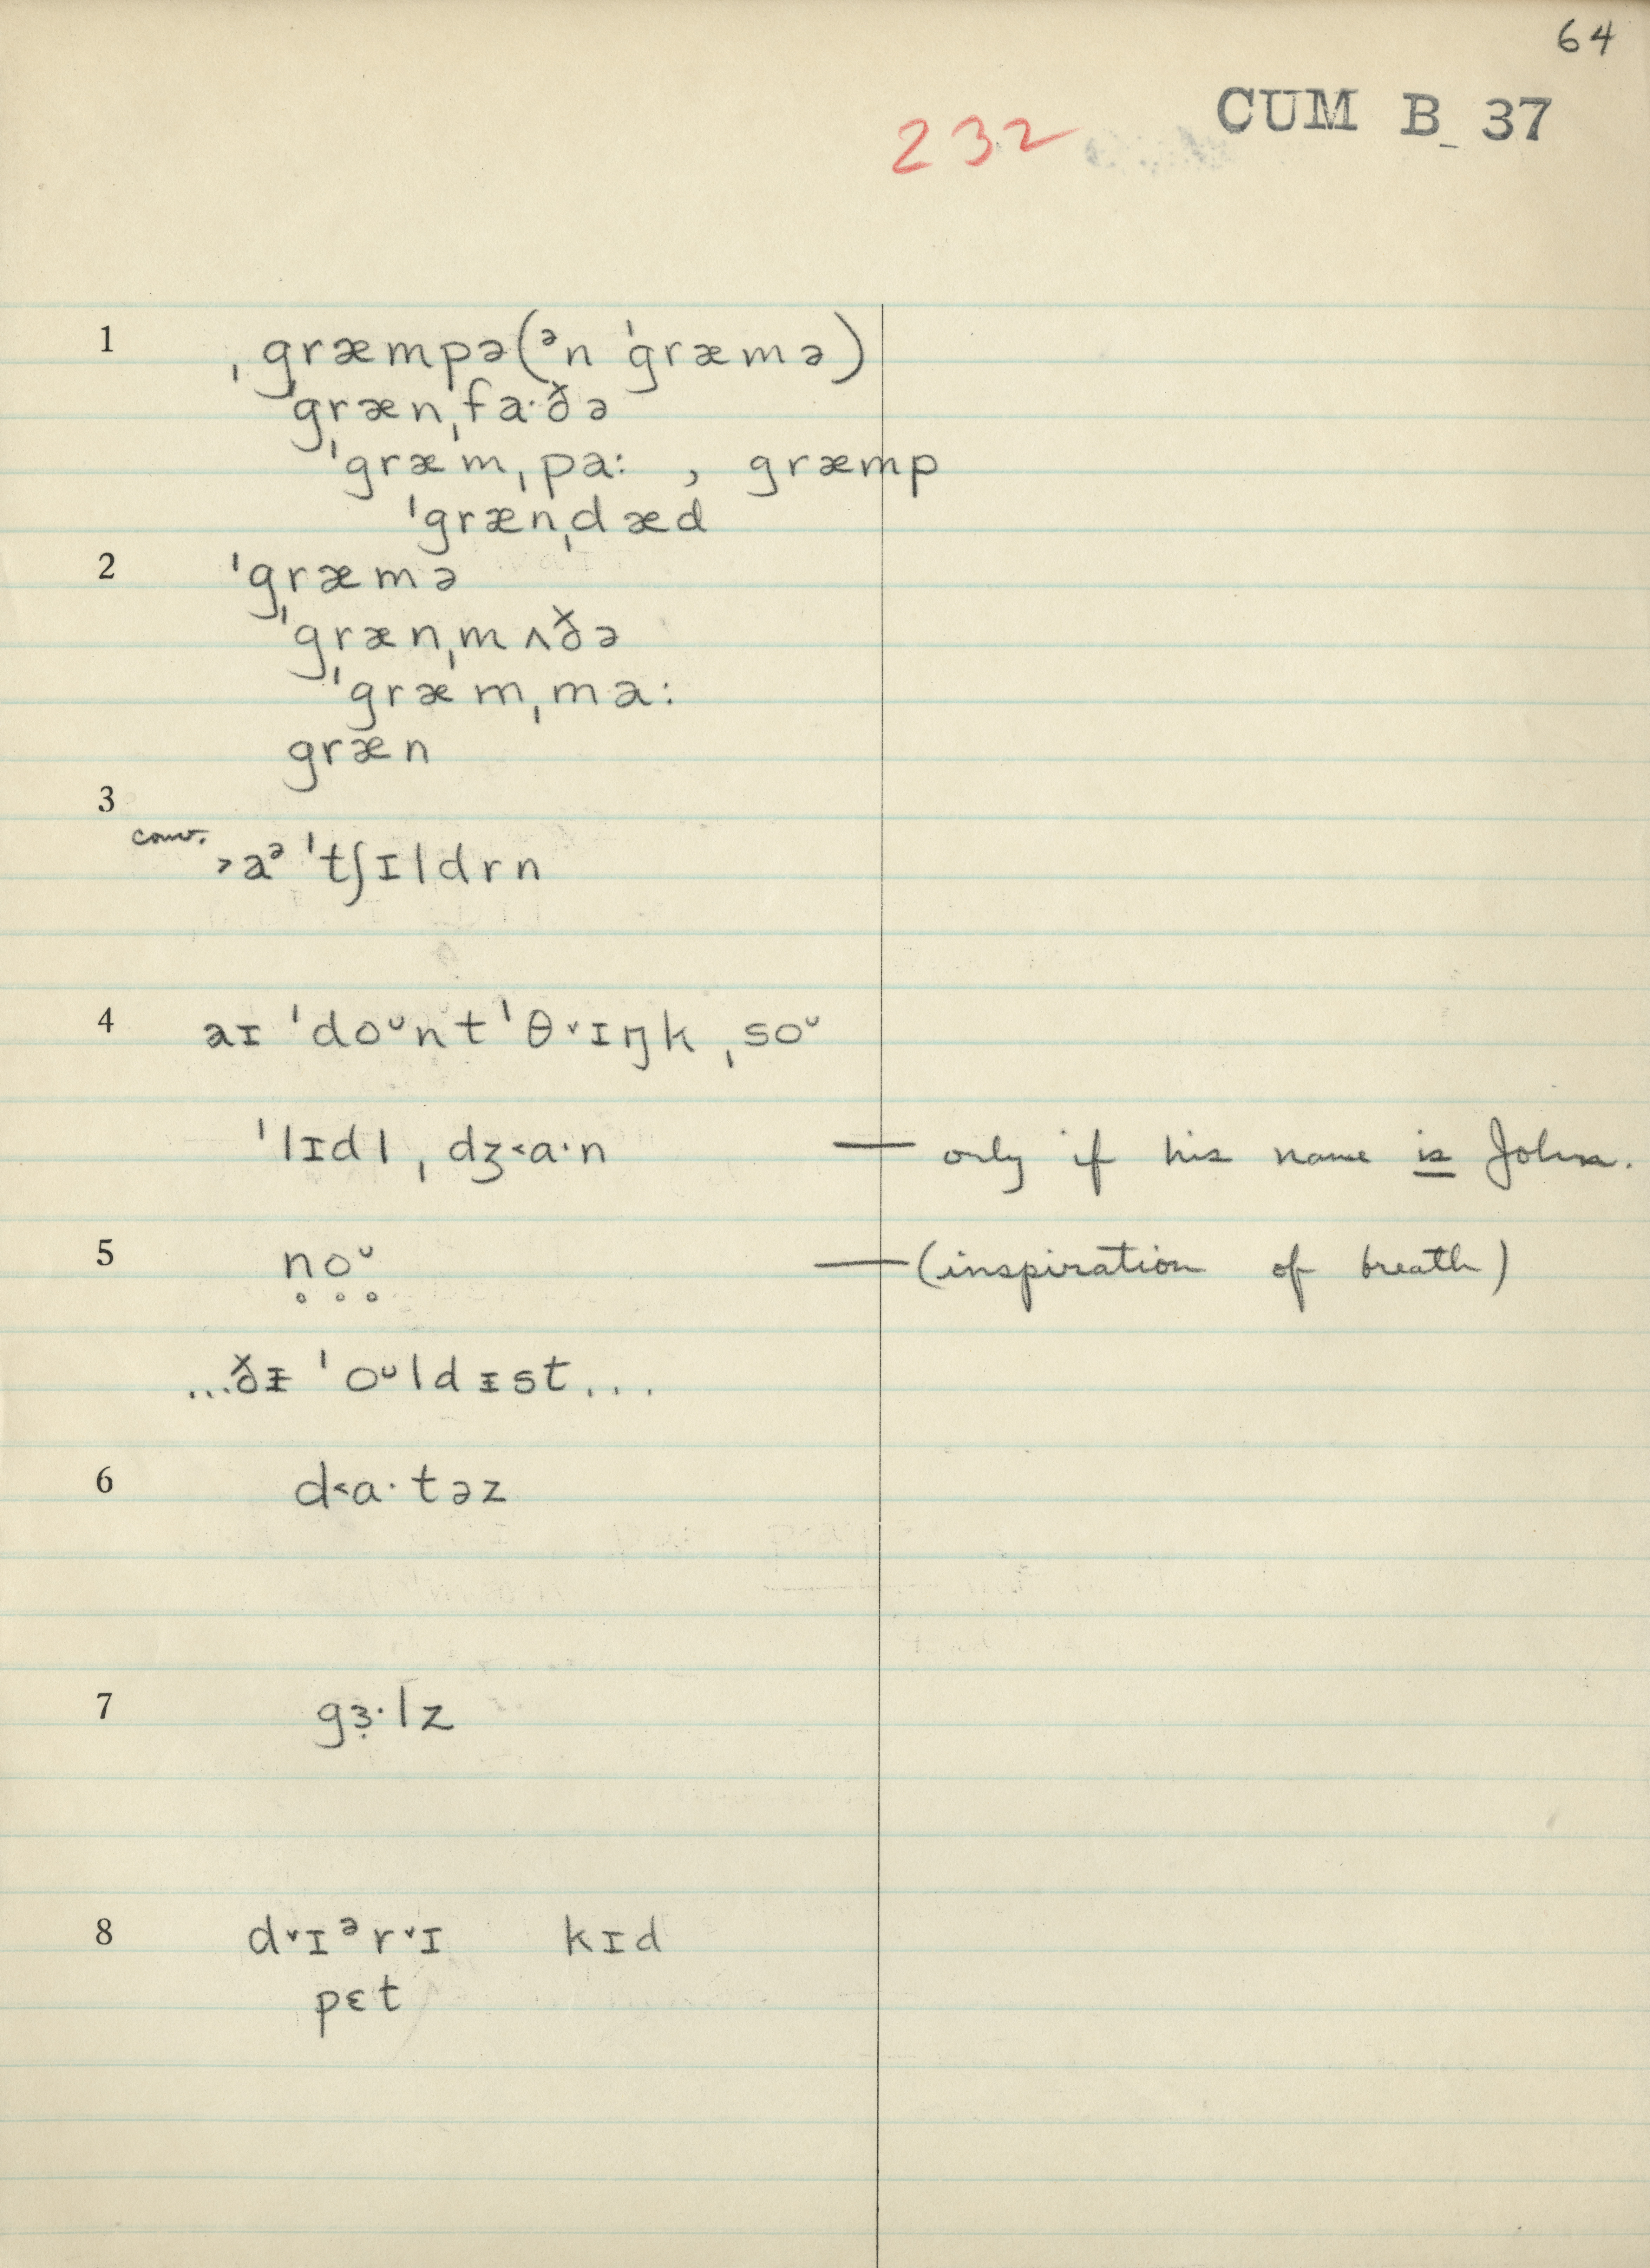 64
232 CUM B 37
1 ˌgræmpə(ᵊn ˈgræmə)
ˈgrænˌfaˑðə
ˈgræmˌpaː , græmp
ˈgrænˌdæd
2 ˈgræmə
ˈgrænˌmʌðə
ˈgræmˌmaː
græn
3
conv. ˃aᵊ ˈtʃɪldrn
4 aɪ ˈdoᶷnt ˈθ˅ɪŋk ˌsoᶷ
ˈlɪdl ˌdʒ˂ɑˑn — only if his name is John.
5 n̥o̥ᶷ̥ — (inspiration of breath)
...ðᵻ ˈoᶷldᵻst...
6 d˂ɑˑtəz
7 gɜ̣ˑlz
8 d˅ɪᵊr˅ɪ kɪd
pɛt